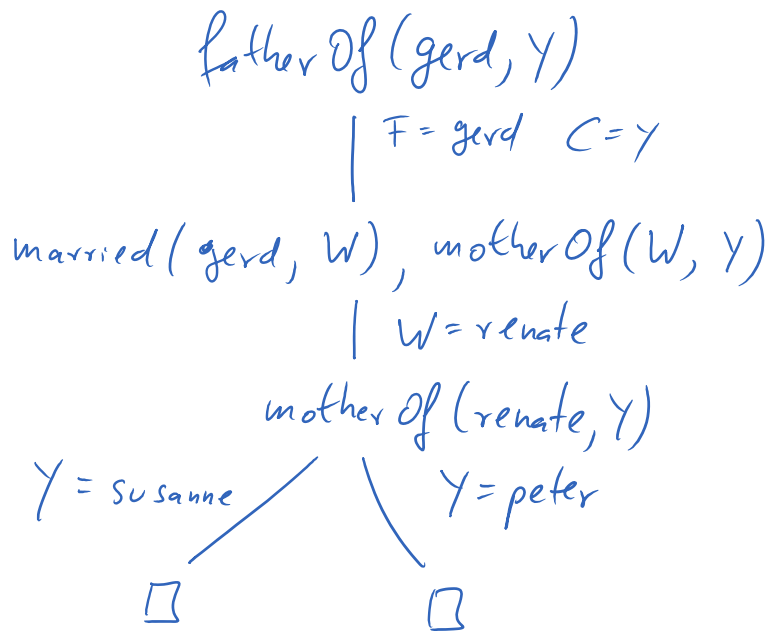 fatherOf(gerd, Y)
F = gerd C = Y
married(gerd, W), motherOf(W, Y)
W = renate
motherOf(renate, Y)
Y = susanne Y = peter